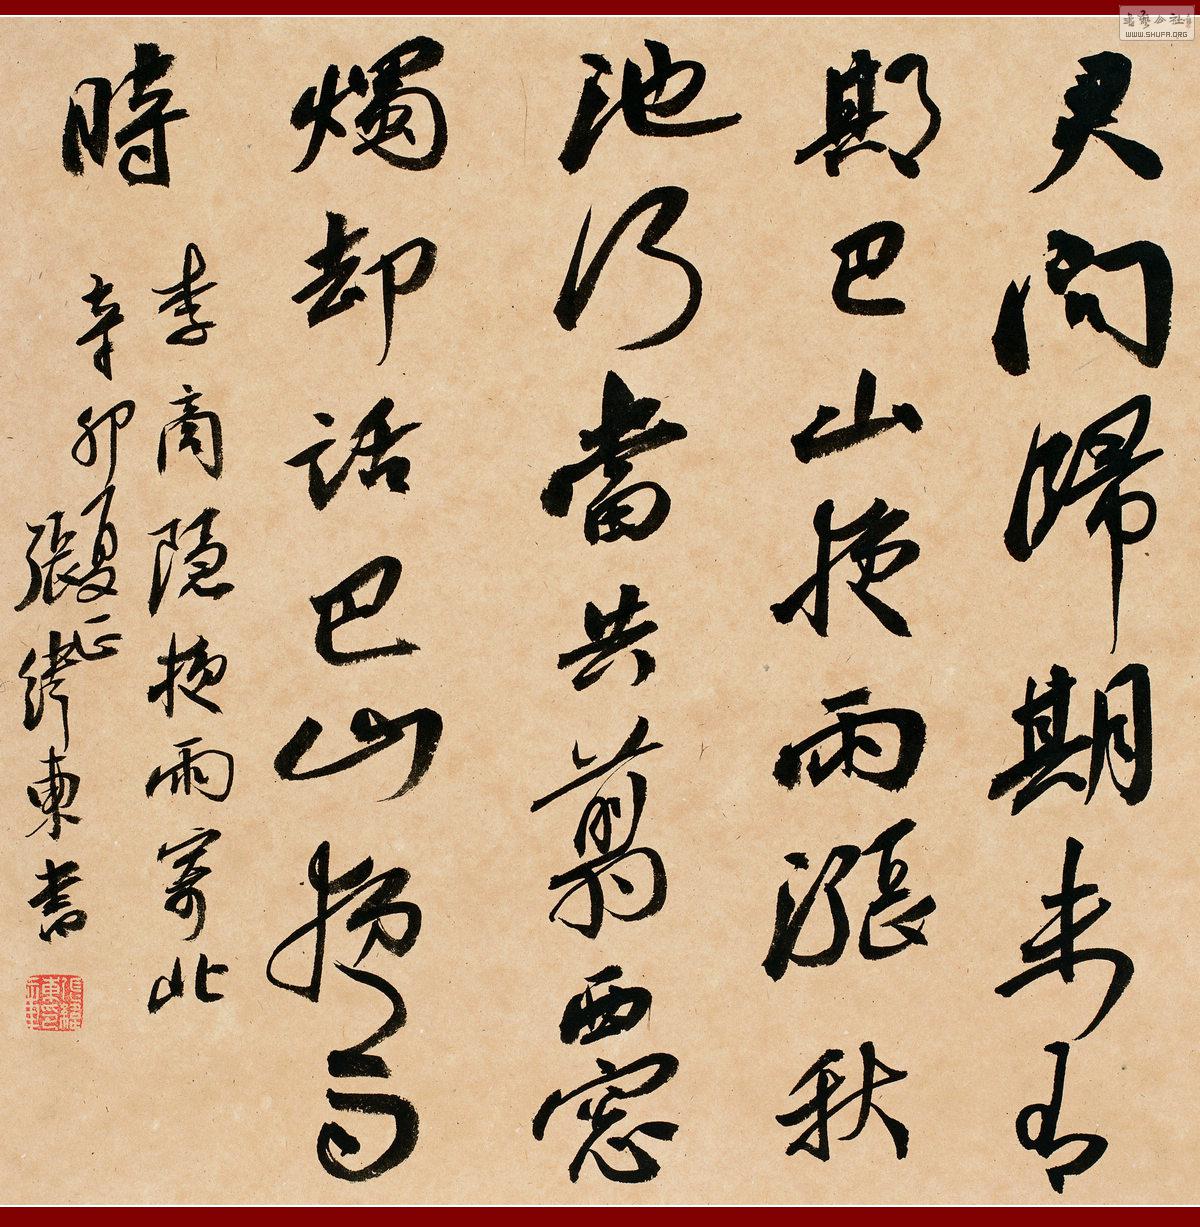 君問歸期未有
期巴山夜雨漲秋
池何當共翦西窓
燭却話巴山夜雨
時
李商隱夜雨寄北
辛卯夏正
張緯東書
书艺公社
WWW.SHUFA.ORG